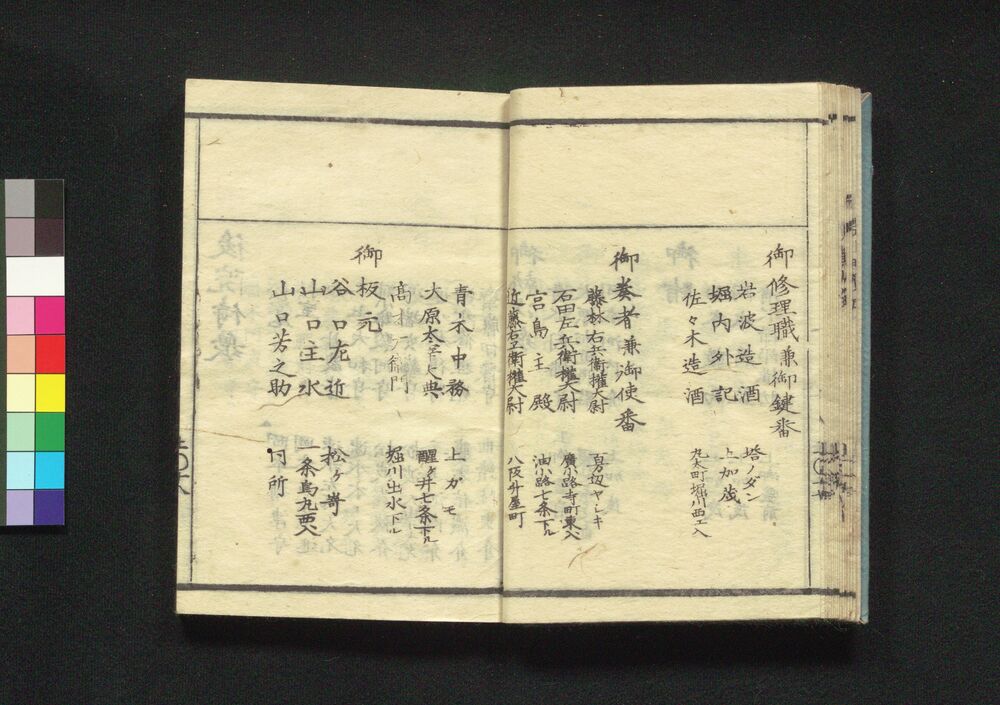 御修理職兼御鍵番
岩波造酒 塔ノダン
堀内外記 上加茂
佐々木造酒 丸太町堀川西エ入
御奏者兼御使番
藤林右兵衛権大尉
石田左兵衛権大尉 廣小路寺町東入
宮島主殿 油小路七条下ル
近藤右兵衛権大尉 八阪升屋町
青木中務 上ガモ
大原大宰大典 醒ヶ井七条下ル
堀川出水下ル
御板元
谷口左近 松ヶ嵜
山口主水 一条烏丸西入
山口芳之助 同所